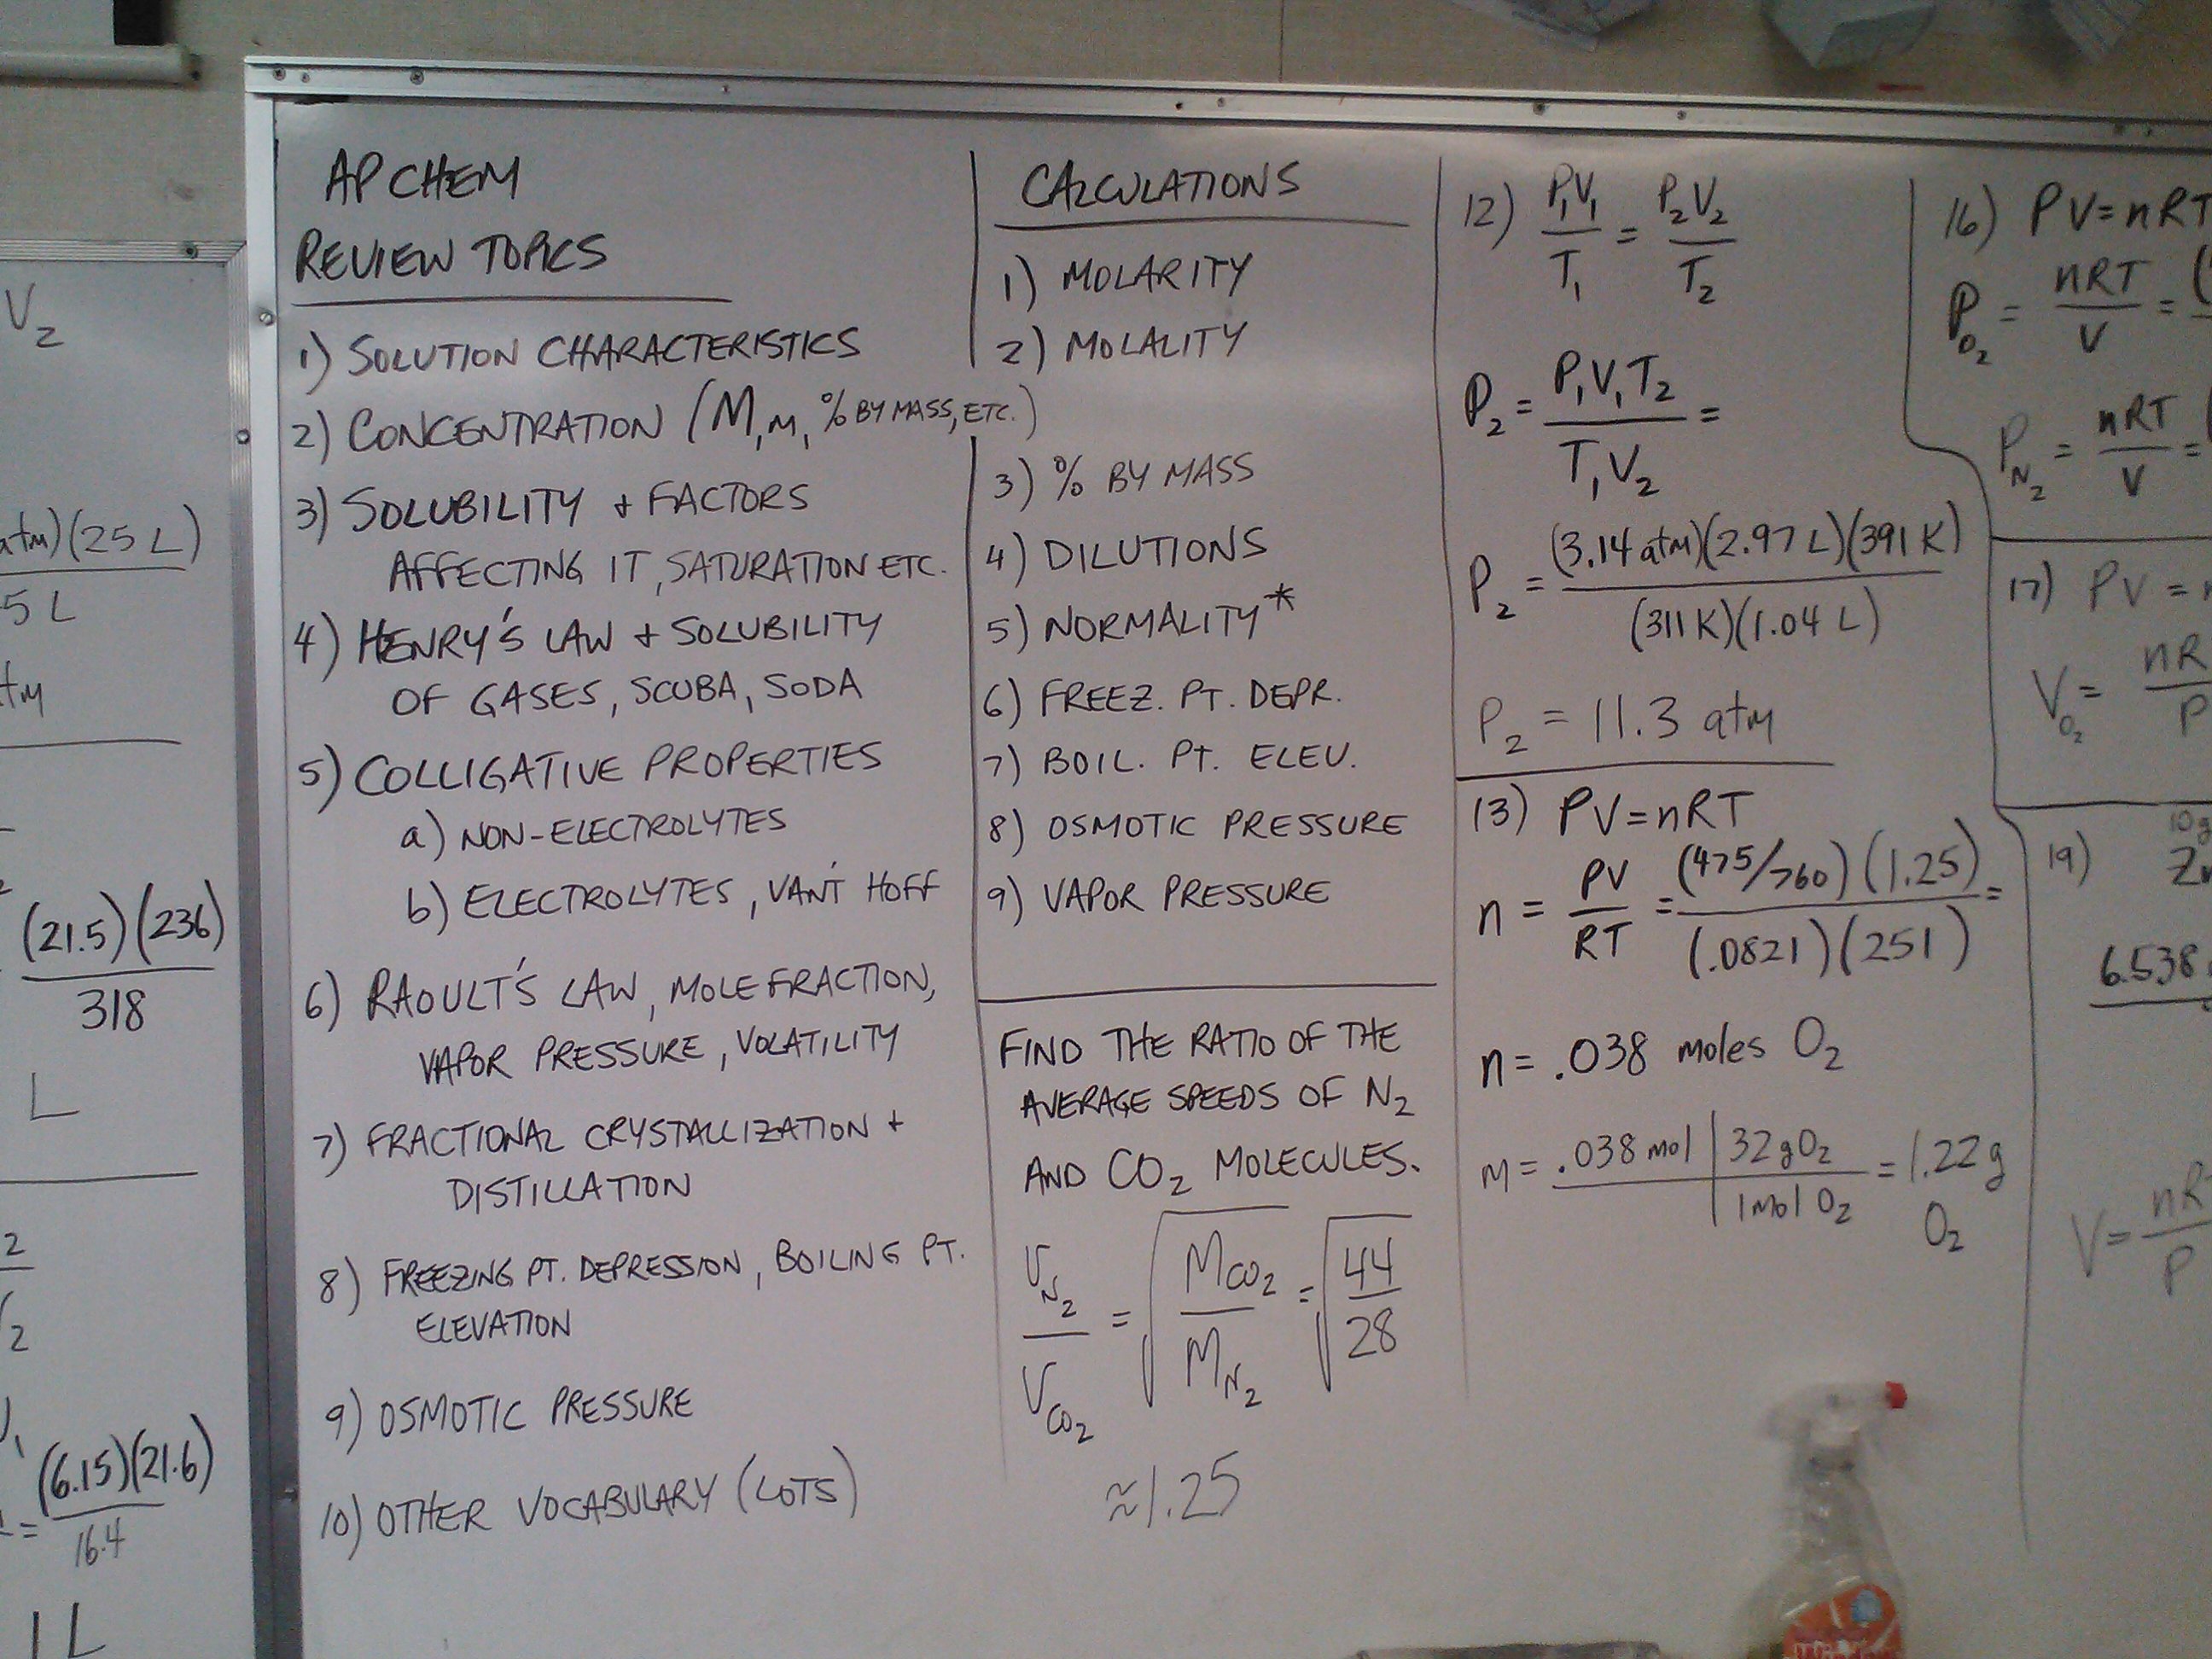 AP CHEM
REVIEW TOPICS
1) SOLUTION CHARACTERISTICS
2) CONCENTRATION (M, m, % BY MASS, ETC.)
3) SOLUBILITY + FACTORS
AFFECTING IT, SATURATION ETC.
4) HENRY'S LAW + SOLUBILITY
OF GASES, SCUBA, SODA
5) COLLIGATIVE PROPERTIES
a) NON-ELECTROLYTES
b) ELECTROLYTES, VAN'T HOFF
6) RAOULT'S LAW, MOLE FRACTION,
VAPOR PRESSURE, VOLATILITY
7) FRACTIONAL CRYSTALLIZATION +
DISTILLATION
8) FREEZING PT. DEPRESSION, BOILING PT.
ELEVATION
9) OSMOTIC PRESSURE
10) OTHER VOCABULARY (LOTS)
CALCULATIONS
1) MOLARITY
2) MOLALITY
3) % BY MASS
4) DILUTIONS
5) NORMALITY*
6) FREEZ. PT. DEPR.
7) BOIL. PT. ELEV.
8) OSMOTIC PRESSURE
9) VAPOR PRESSURE
FIND THE RATIO OF THE
AVERAGE SPEEDS OF N₂
AND CO₂ MOLECULES.
V_N₂ / V_CO₂ = √(M_CO₂ / M_N₂) = √(44 / 28)
≈1.25
12) P₁V₁ / T₁ = P₂V₂ / T₂
P₂ = P₁V₁T₂ / T₁V₂ =
P₂ = (3.14 atm)(2.97 L)(391 K) / (311 K)(1.04 L)
P₂ = 11.3 atm
13) PV=nRT
n = PV / RT = (475/760)(1.25) / (.0821)(251) =
n = .038 moles O₂
m = .038 mol | 32 g O₂ / 1 mol O₂ = 1.22 g
O₂
16) PV=nRT
P_O₂ = nRT / V = (
P_N₂ = nRT / V = (
17) PV =
V_O₂ = nR / P
19)
10 g
Z
6.538
V = nR / P
V₂
atm)(25 L)
5 L
tm
(21.5)(236)
318
L
2
2
1
= (6.15)(21.6)
16.4
1 L